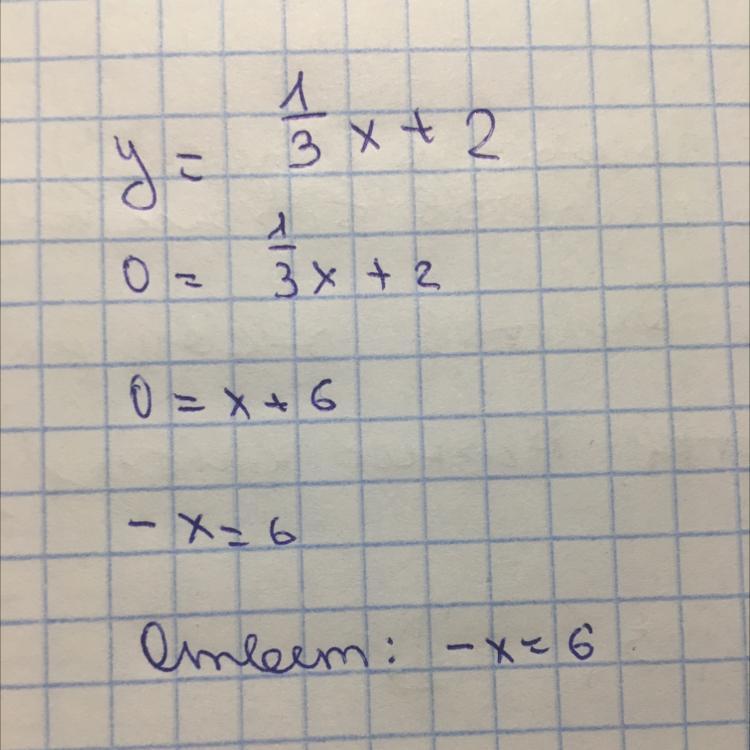 y = 1/3 x + 2
0 = 1/3 x + 2
0 = x + 6
- x = 6
Ответ: - x = 6